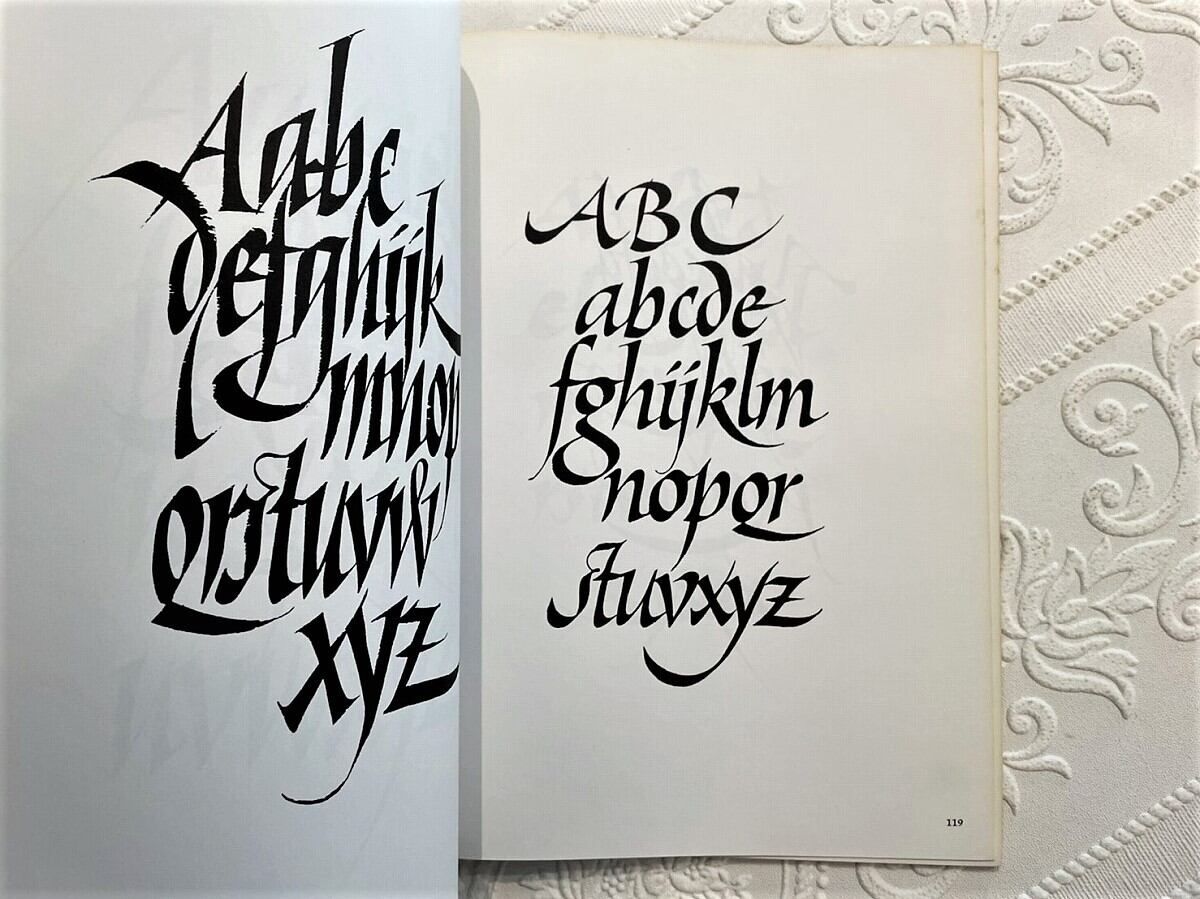 Aabc
defghijk
lmnop
qrstuvw
xyz
ABC
abcde
fghijklm
nopqr
stuvxyz
119